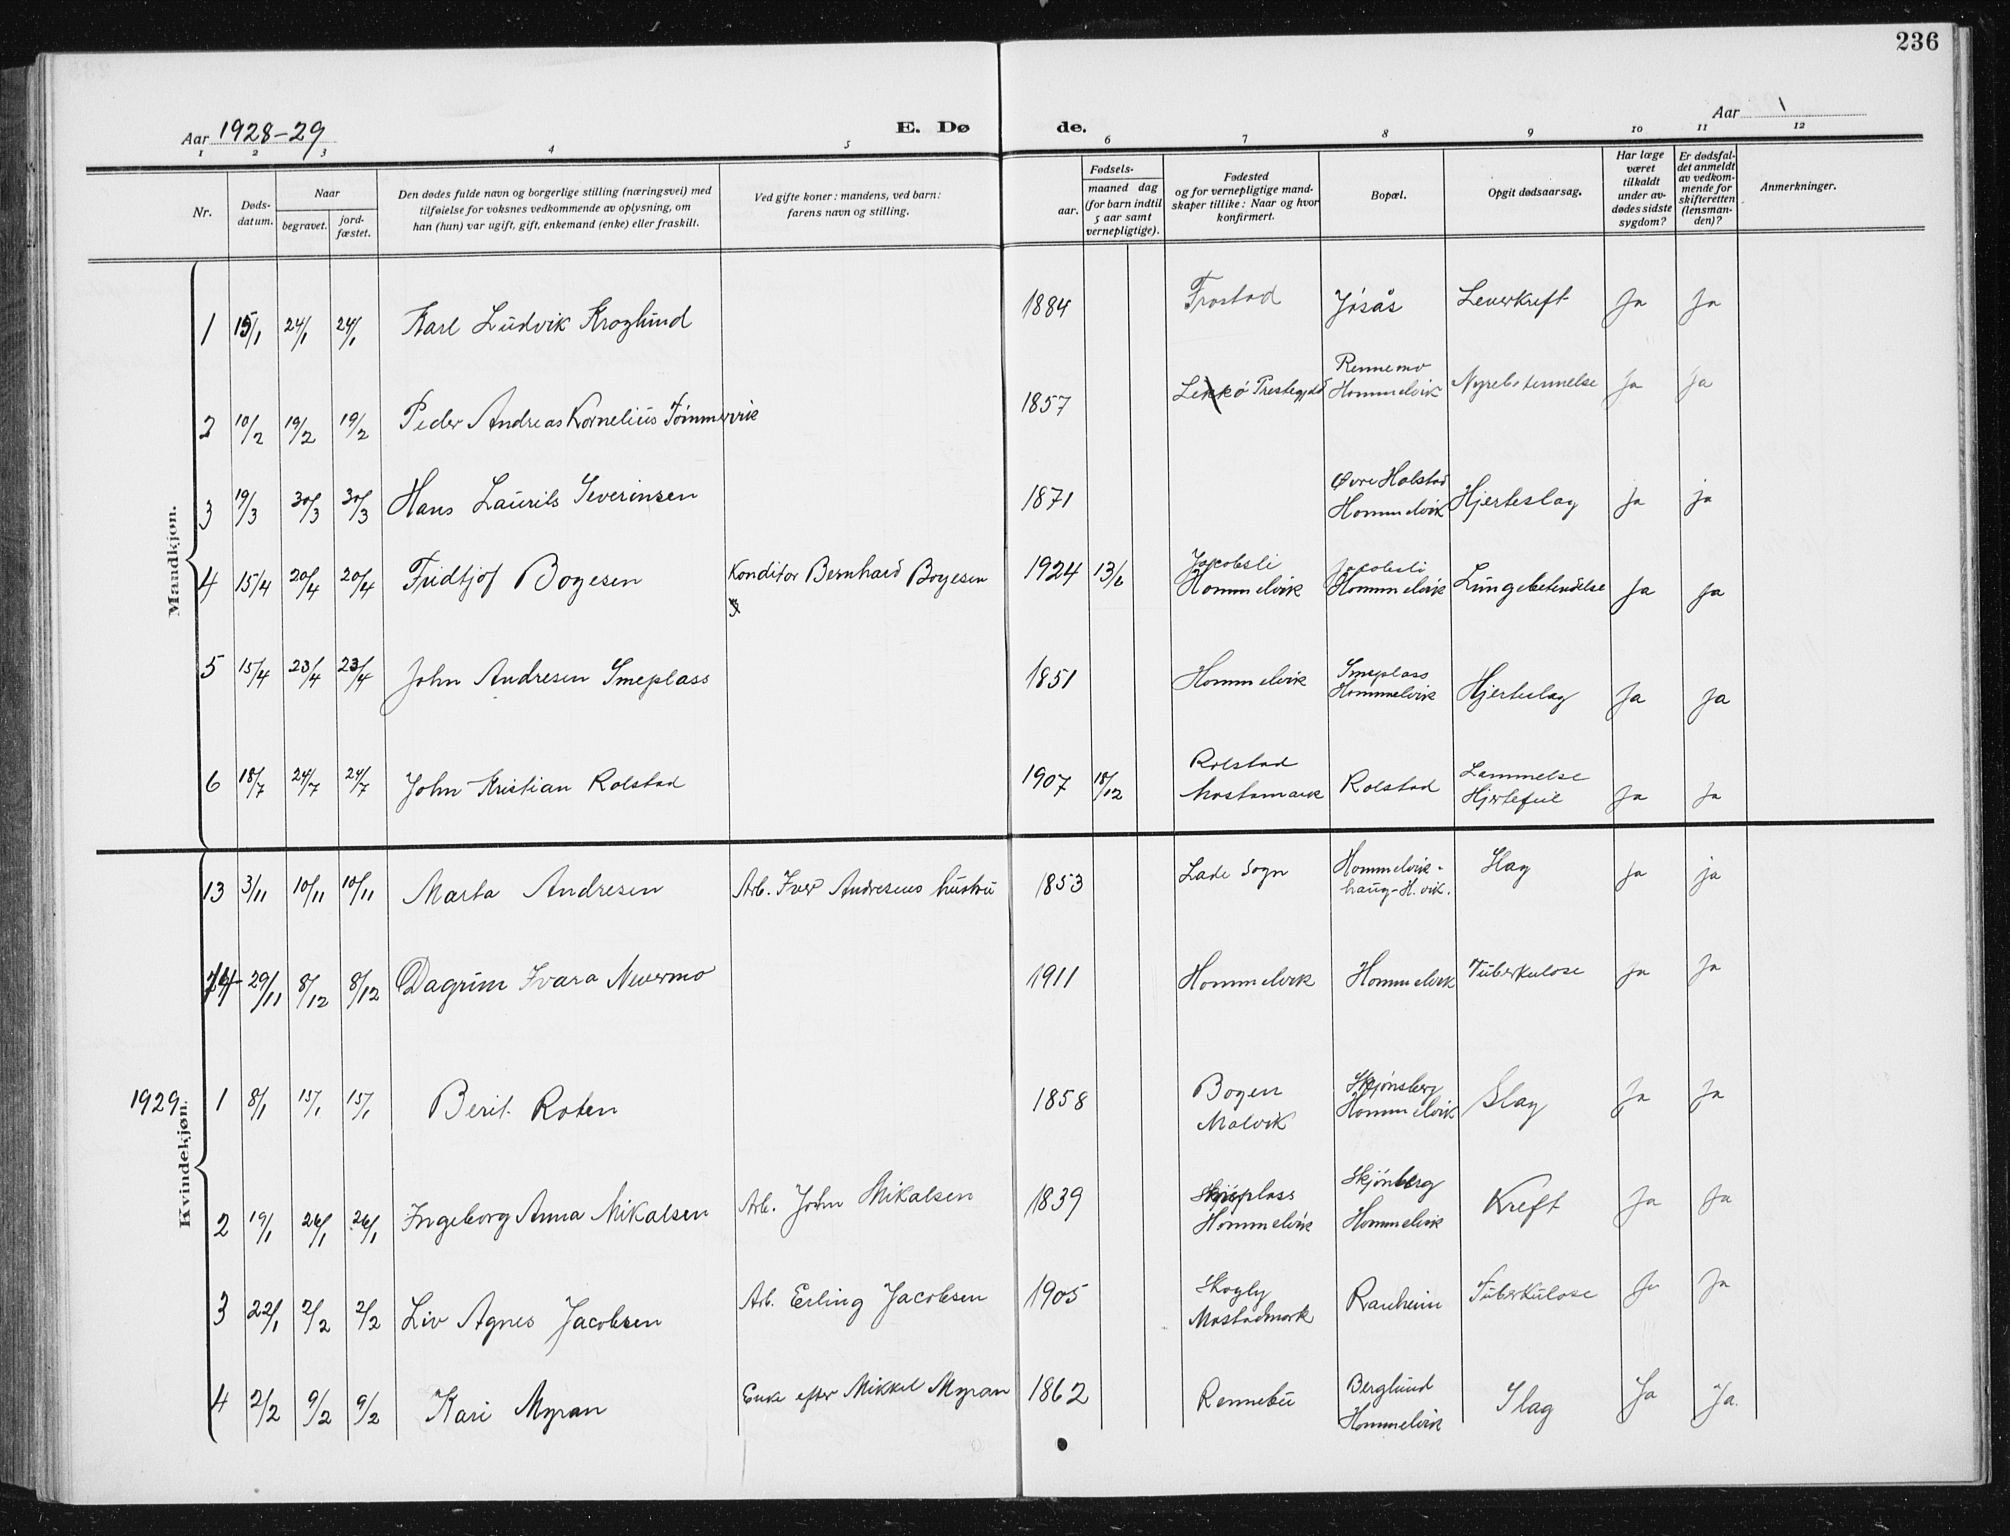 236
Aar 1928-29
E. Dø de.
Aar 1
1 2 3 4 5 6 7 8 9 10 11 12
Nr.
Døds-datum.
Naar
begravet.
jord-fæstet.
Den dødes fulde navn og borgerlige stilling (næringsvei) med
tilføielse for voksnes vedkommende av oplysning, om
han (hun) var ugift, gift, enkemand (enke) eller fraskilt.
Ved gifte koner: mandens, ved barn:
farens navn og stilling.
Fødsels-
aar.
maaned dag
(for barn indtil
5 aar samt
vernepligtige).
Fødested
og for vernepligtige mand-
skaper tillike: Naar og hvor
konfirmert.
Bopæl.
Opgit dødsaarsag.
Har læge
været
tilkaldt
under av-
dødes sidste
sygdom?
Er dødsfal-
det anmeldt
av vedkom-
mende for
skifteretten
(lensman-
den)?
Anmerkninger.
Mandkjøn.
1 15/1 24/1 24/1 Karl Ludvik Kroglund 1884 Frostad Jøsås Leverkreft Ja Ja
2 10/2 19/2 19/2 Peder Andreas Kornelius Tømmervik 1857 Lekkø Prestegjeld Rennemo Hommelvik Nyrebetennelse Ja Ja
3 19/3 30/3 30/3 Hans Laurits Severinsen 1871 Øvre Halstad Hommelvik Hjerteslag Ja ja
4 15/4 20/4 20/4 Fridtjof Bogesen Konditor Bernhard Bogesen 1924 13/6 Jacobsli Hommelvik Jacobsli Hommelvik Lungebetendelse Ja Ja
5 15/4 23/4 23/4 John Andresen Smeplass 1851 Hommelvik Smeplass Hommelvik Hjerteslag Ja Ja
6 18/7 24/7 24/7 John Kristian Rolstad 1907 18/12 Rolstad Mostamark Rolstad Lammelse Hjertefeil Ja Ja
Kvindekjøn.
13 3/11 10/11 10/11 Marta Andresen Arb. Iver Andresens hustru 1853 Lade Sogn Hommelvik-haug-H.vik. Slag Ja ja
14 29/11 8/12 8/12 Dagrun Ivara Nevermo 1911 Hommelvik Hommelvik Tuberkulose Ja Ja
1929. 1 8/1 15/1 15/1 Berit Roten 1858 Bogen Malvik Skjønsberg Hommelvik Slag Ja Ja
2 19/1 26/1 26/1 Ingeborg Anna Mikalsen Arb. John Mikalsen 1839 Hommelvik Skjønberg Hommelvik Kreft Ja Ja
3 22/1 2/2 2/2 Liv Agnes Jacobsen Arb. Erling Jacobsen 1905 Skogly Mostadmark Ranheim Tuberkulose Ja Ja
4 2/2 9/2 9/2 Kari Myran Enke efter Mikkel Myran 1862 Rennebu Berglund Hommelvik Slag Ja Ja.